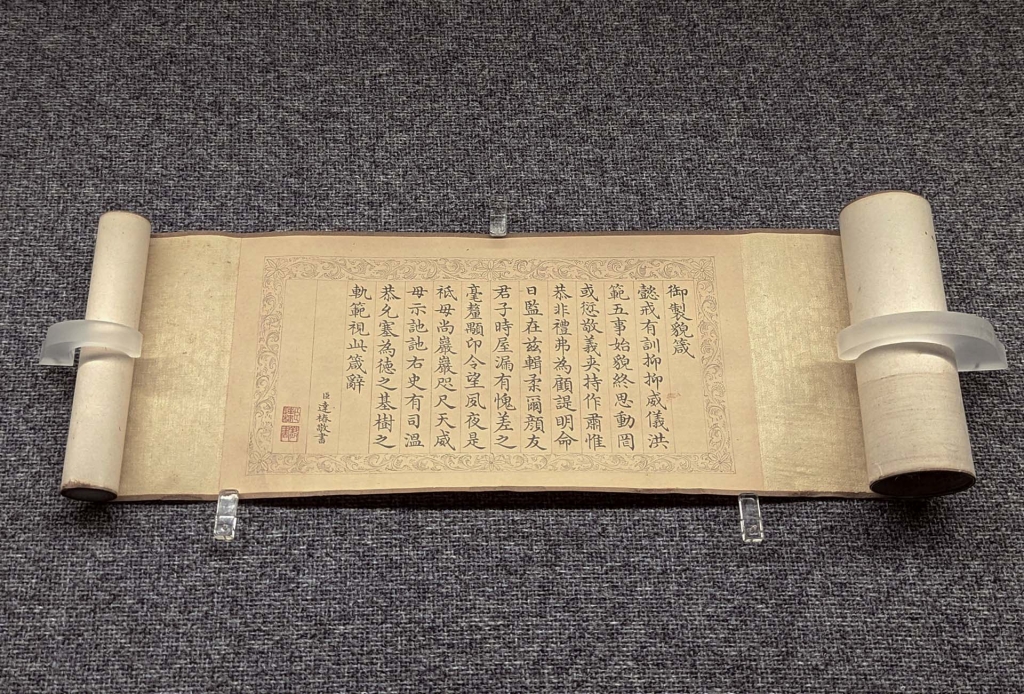 御製貌箴
懿戒有訓抑抑威儀洪
範五事始貌終思動罔
或愆敬義夾持作肅惟
恭非禮弗為顧諟明命
日監在茲輯柔爾顏友
君子時屋漏有愧差之
毫釐顒卬令望夙夜是
祗毋尚巖巖咫尺天威
毋示訑訑右史有司溫
恭允塞為德之基樹之
軌範視此箴辭
臣達椿敬書